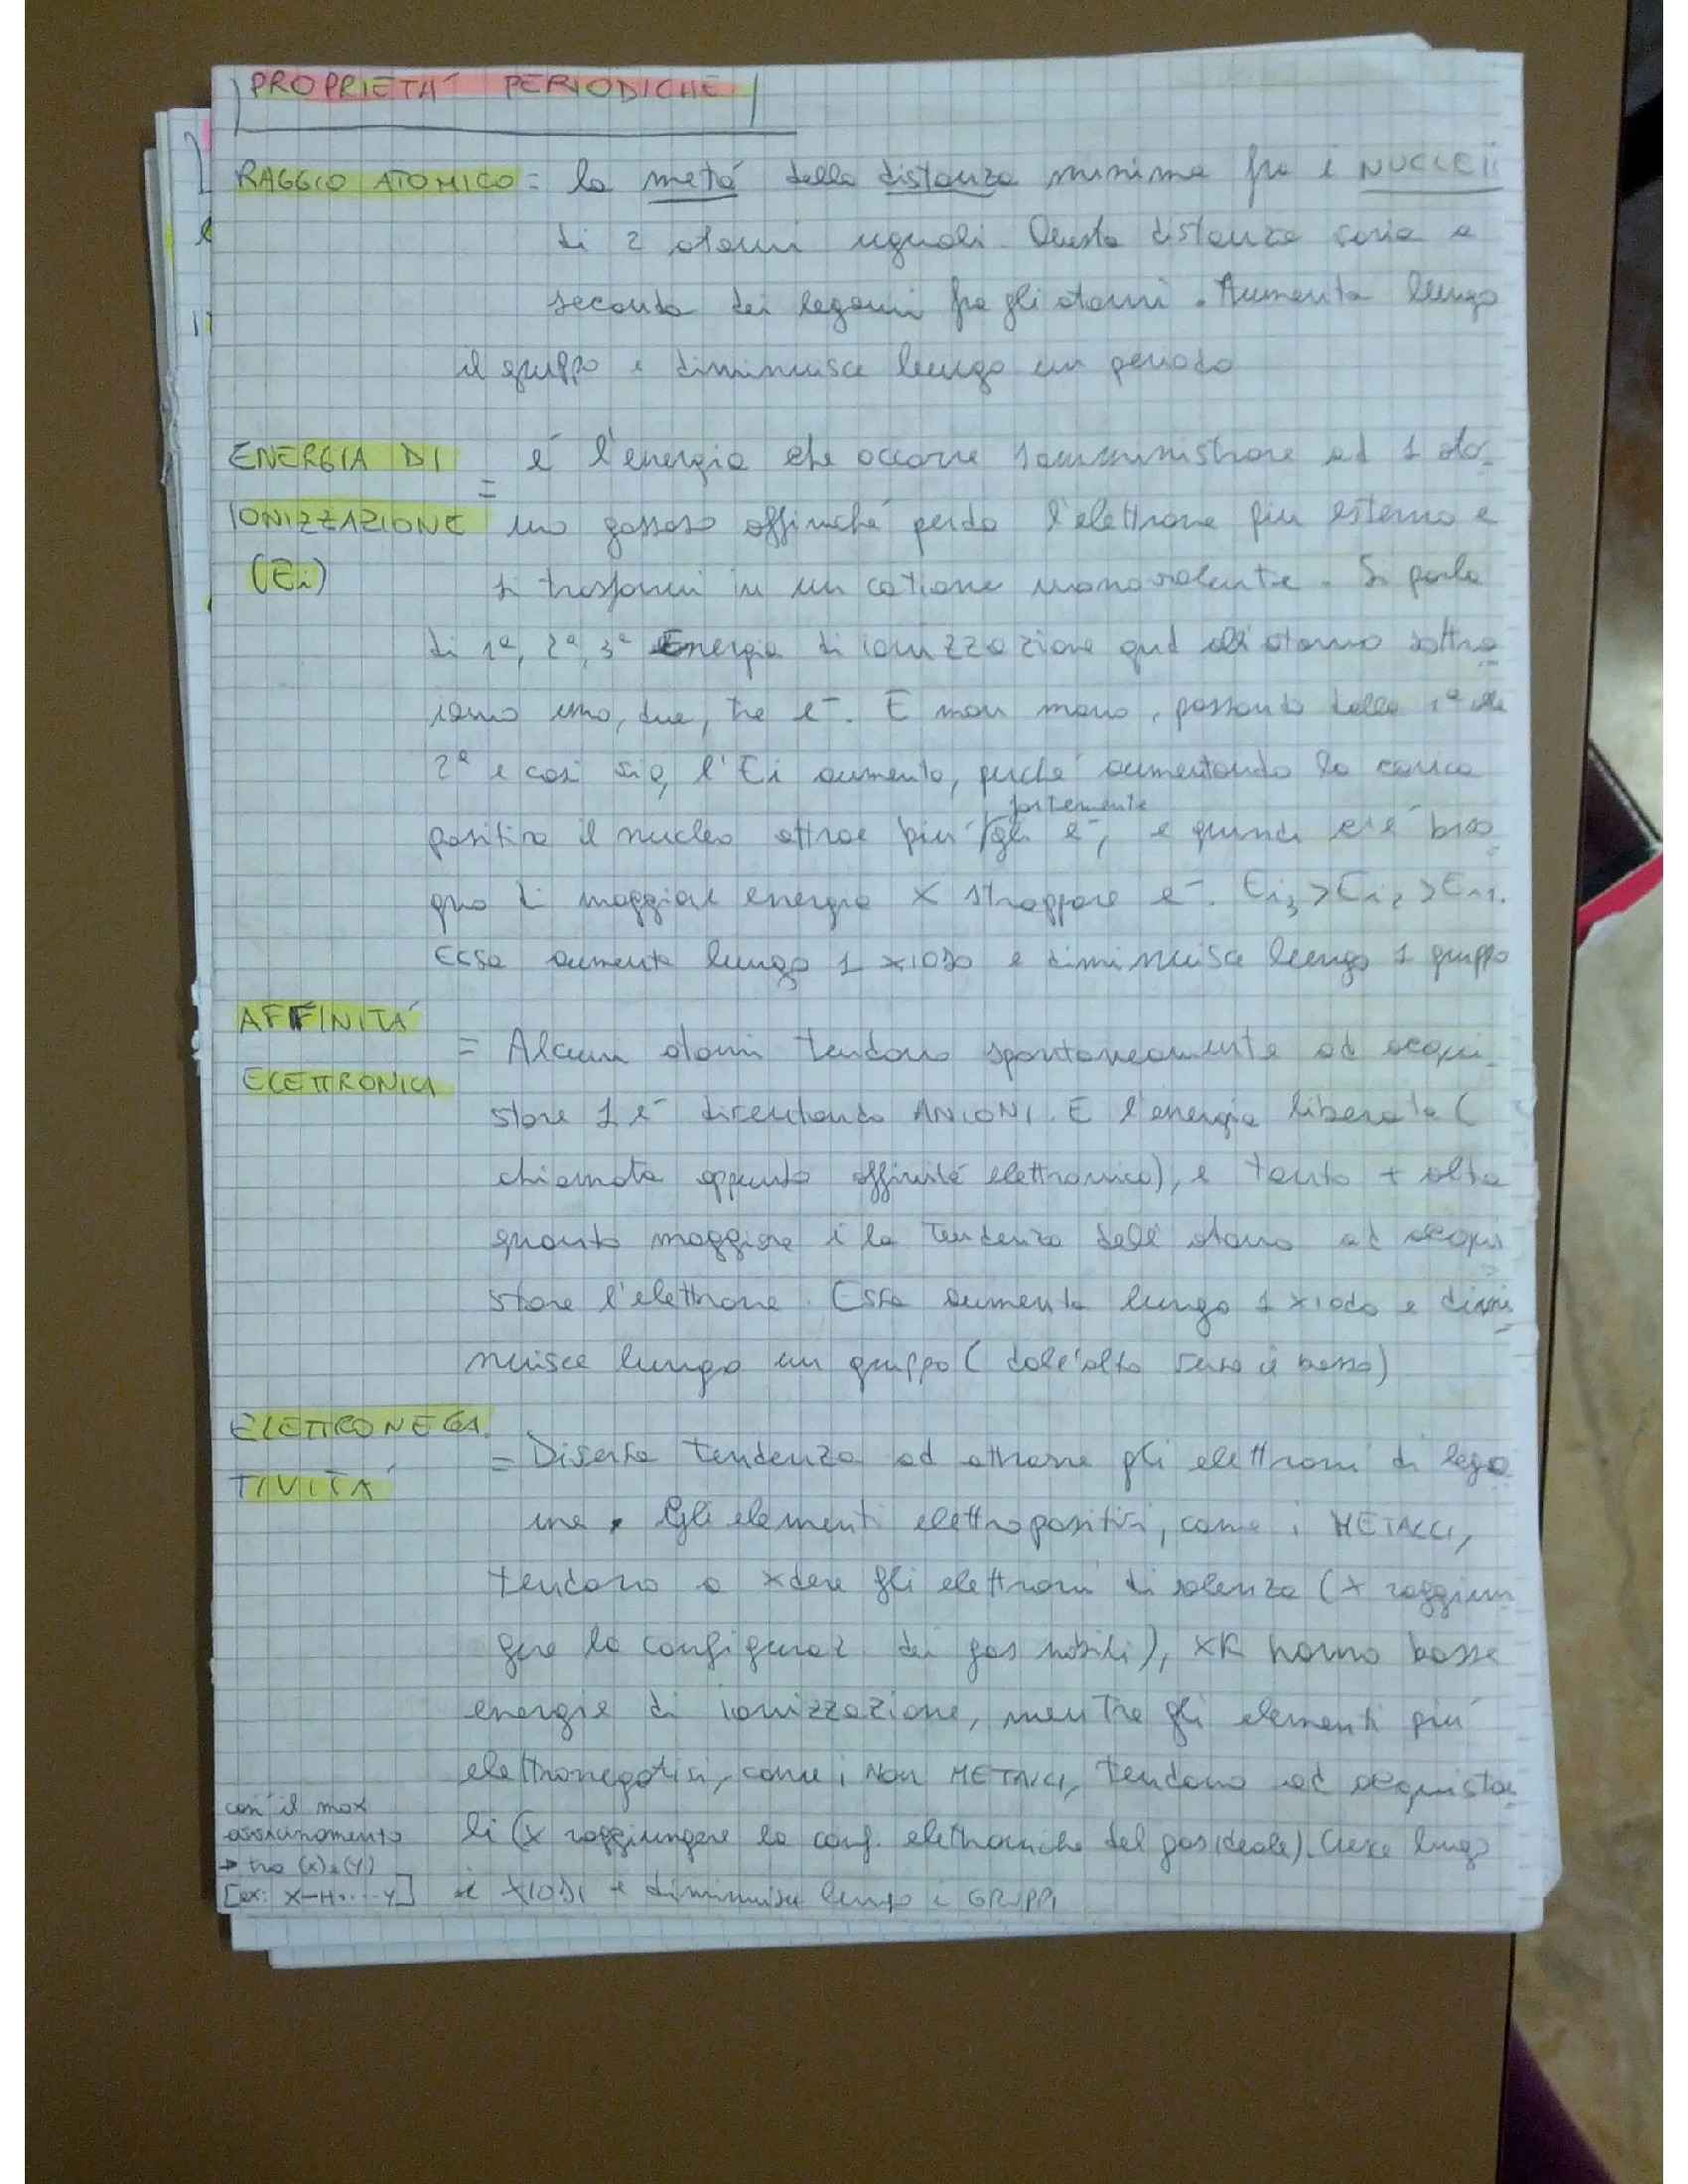 PROPRIETÁ PERIODICHE
RAGGIO ATOMICO = la metá della distanza minima fra i NUCLEII
di 2 atomi uguali. Questa distanza varia a
seconda dei legami fra gli atomi. Aumenta lungo
il gruppo e diminuisce lungo un periodo
ENERGIA DI = é l'energia che occorre somministrare ad 1 ato-
IONIZZAZIONE mo gassoso affinché perda l'elettrone piu esterno e
(Ei) si trasformi in un catione monovalente. Si parla
di 1ª, 2ª, 3ª Energia di ionizzazione qnd all'atomo sottra-
iamo uno, due, tre e⁻. E man mano, passando dalla 1ª alla
2ª e cosi via, l'Ei aumenta, perché aumentando la carica
fortemente
positiva il nucleo attrae piu' gli e⁻, e quindi c'é biso-
gno di maggior energia x strappare e⁻. Ei3 > Ei2 > Ei1.
Essa aumenta lungo 1 xiodo e diminuisce lungo 1 gruppo
AFFINITÁ
= Alcuni atomi tendono spontaneamente ad acqui-
ELETTRONICA
stare 1 e⁻ diventando ANIONI. E l'energia liberata (
chiamata appunto affinitá elettronica), e tanto + alta
quanto maggiore é la tendenza dell'atomo ad acqui-
stare l'elettrone. Essa aumenta lungo 1 xiodo e dimi-
nuisce lungo un gruppo (dall'alto verso il basso)
ELETTRONEGA-
= Diversa tendenza ad attrarre gli elettroni di lega-
TIVITÁ
me. Gli elementi elettropositivi, come i METALLI,
tendono a xdere gli elettroni di valenza (x raggiun-
gere la configuraz. dei gas nobili), XK hanno basse
energie di ionizzazione, mentre gli elementi piú
elettronegativi, come i NON METALLI, tendono ad acquistar-
li (x raggiungere la conf. elettroniche del gas ideale). Cresce lungo
i XIODI e diminuisce lungo i GRUPPI
con il max
avvicinamento
→ tra (x) e (y)
[ex: X-H....Y]